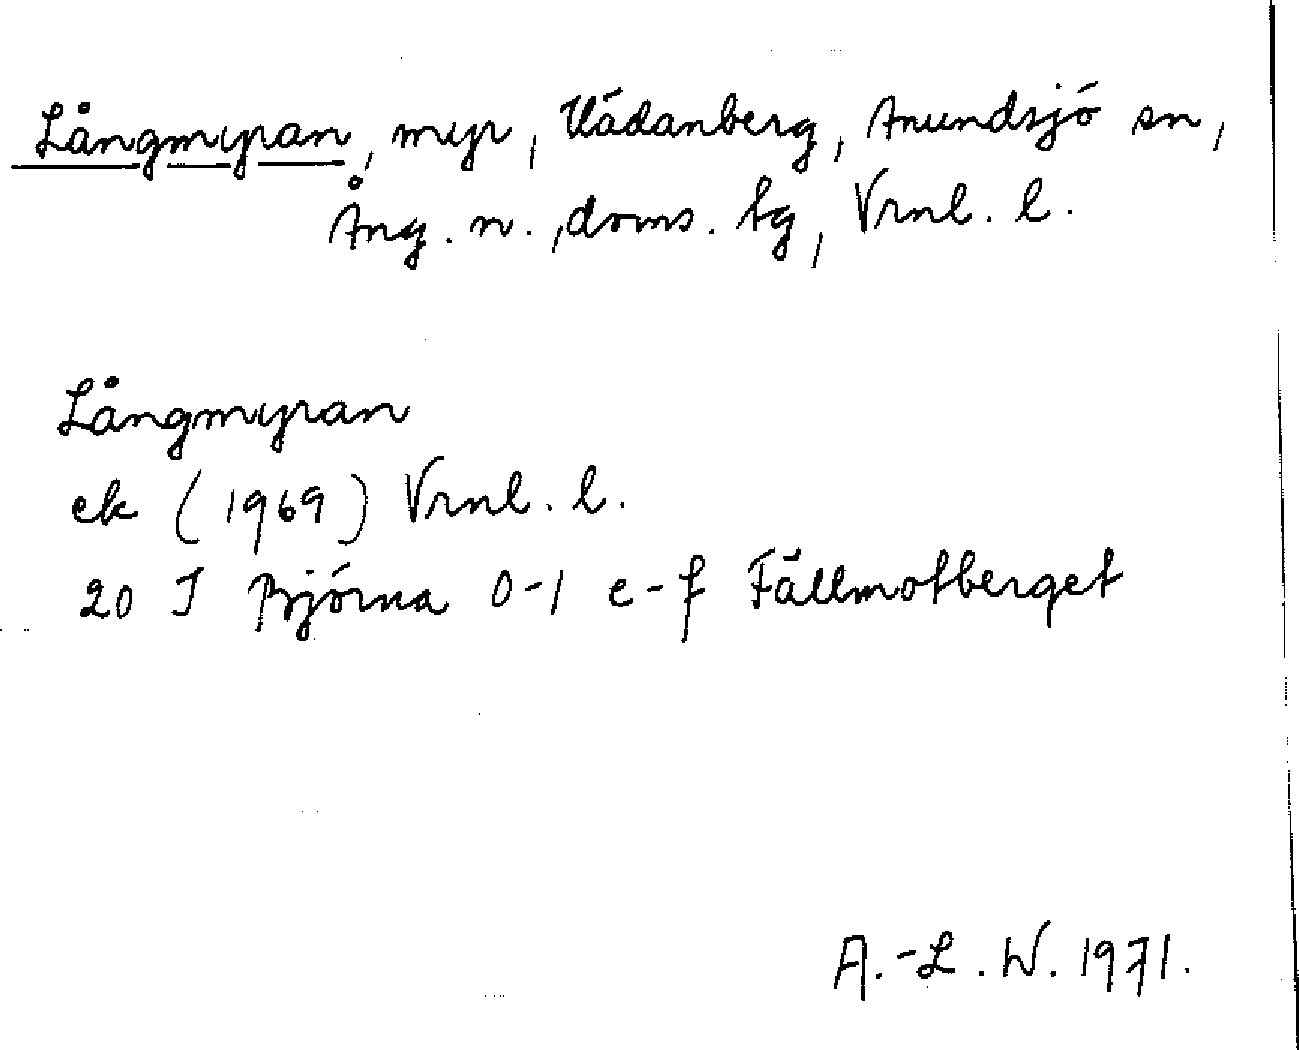 Långmyran, myr, Vädanberg, Anundsjö sn,
Ång. n., doms. tg, Vrnl. l.
Långmyran
ek (1969) Vrnl. l.
20 J Björna 0-1 e-f Fällmotberget
A.-L. W. 1971.